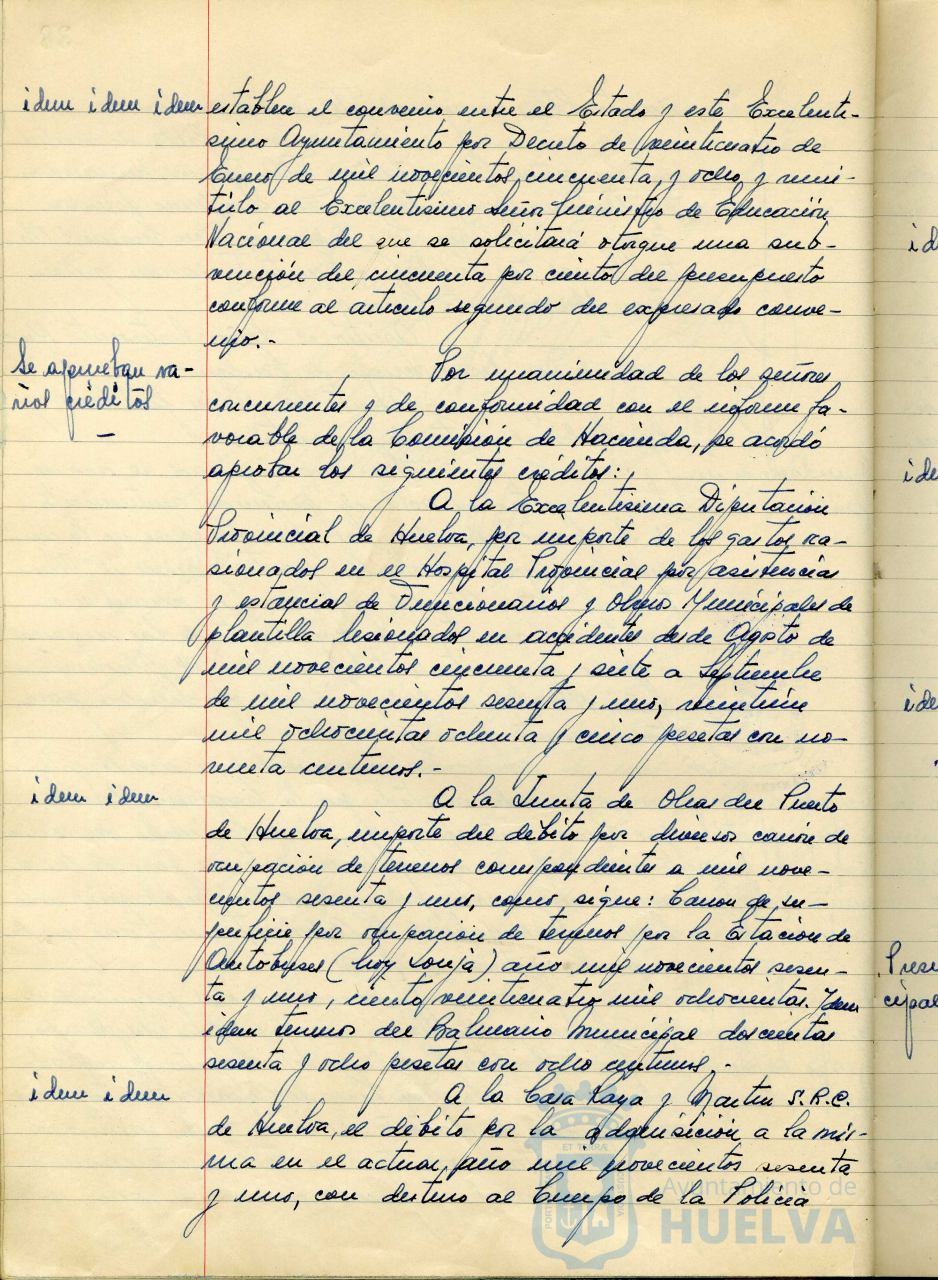 idem idem idem
establece el convenio entre el Estado y este Excelentí-
simo Ayuntamiento por Decreto de veinticuatro de
Enero de mil novecientos cincuenta y ocho, y remi-
tirlo al Excelentísimo Señor Ministro de Educación
Nacional del que se solicitará otorgue una sub-
vención del cincuenta por ciento del presupuesto
conforme al artículo segundo del expresado conve-
nio.-
Se aprueban va-
rios créditos
Por unanimidad de los señores
concurrentes y de conformidad con el informe fa-
vorable de la Comisión de Hacienda, se acordó
aprobar los siguientes créditos:
A la Excelentísima Diputación
Provincial de Huelva, por importe de los gastos oca-
sionados en el Hospital Provincial por asistencias
y estancias de Funcionarios y Obreros Municipales de
plantilla lesionados en accidentes desde Agosto de
mil novecientos cincuenta y siete a Septiembre
de mil novecientos sesenta y uno, veintiún
mil ochocientas ochenta y cinco pesetas con no-
venta céntimos.-
idem idem
A la Junta de Obras del Puerto
de Huelva, importe del débito por diversos canon de
ocupación de terrenos correspondientes a mil nove-
cientos sesenta y uno, como sigue: Canon de su-
perficie por ocupación de terrenos por la Estación de
Autobuses (hoy Lonja) año mil novecientos sesen-
ta y uno, ciento veinticuatro mil ochocientas. Idem
idem terrenos del Balneario Municipal doscientas
sesenta y ocho pesetas con ocho céntimos.-
idem idem
A la Casa Laya y Martín S.R.C.
de Huelva, el débito por la adquisición a la mis-
ma en el actual año mil novecientos sesenta
y uno, con destino al Cuerpo de la Policía
Ayuntamiento de
HUELVA